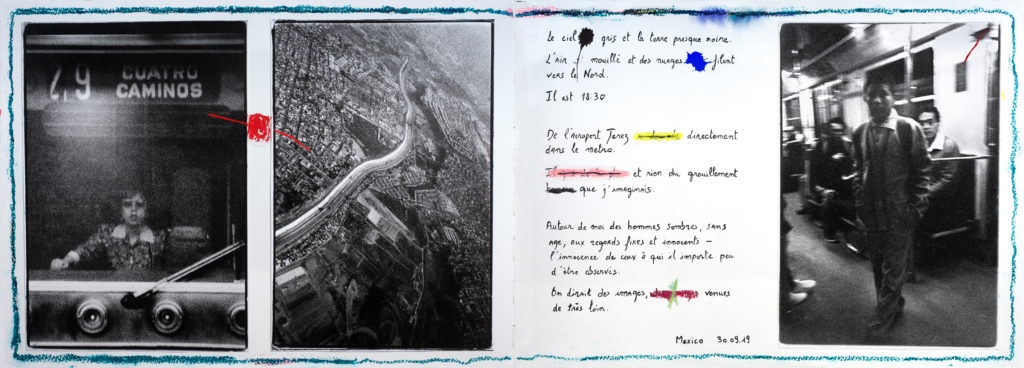 2,9
CUATRO
CAMINOS
Le ciel gris et la terre presque noire.
L'air mouillé et des nuages filent
vers le Nord.
Il est 18.30
De l'Aéroport Jarez directement
dans le metro.
et rien du grouillement
que j'imaginais.
Autour de moi des hommes sombres, sans
age, aux regards fixes et innocents –
l'innocence de ceux à qui il importe peu
d'être observés.
On dirait des images, venues
de très loin.
Mexico 30.09.19